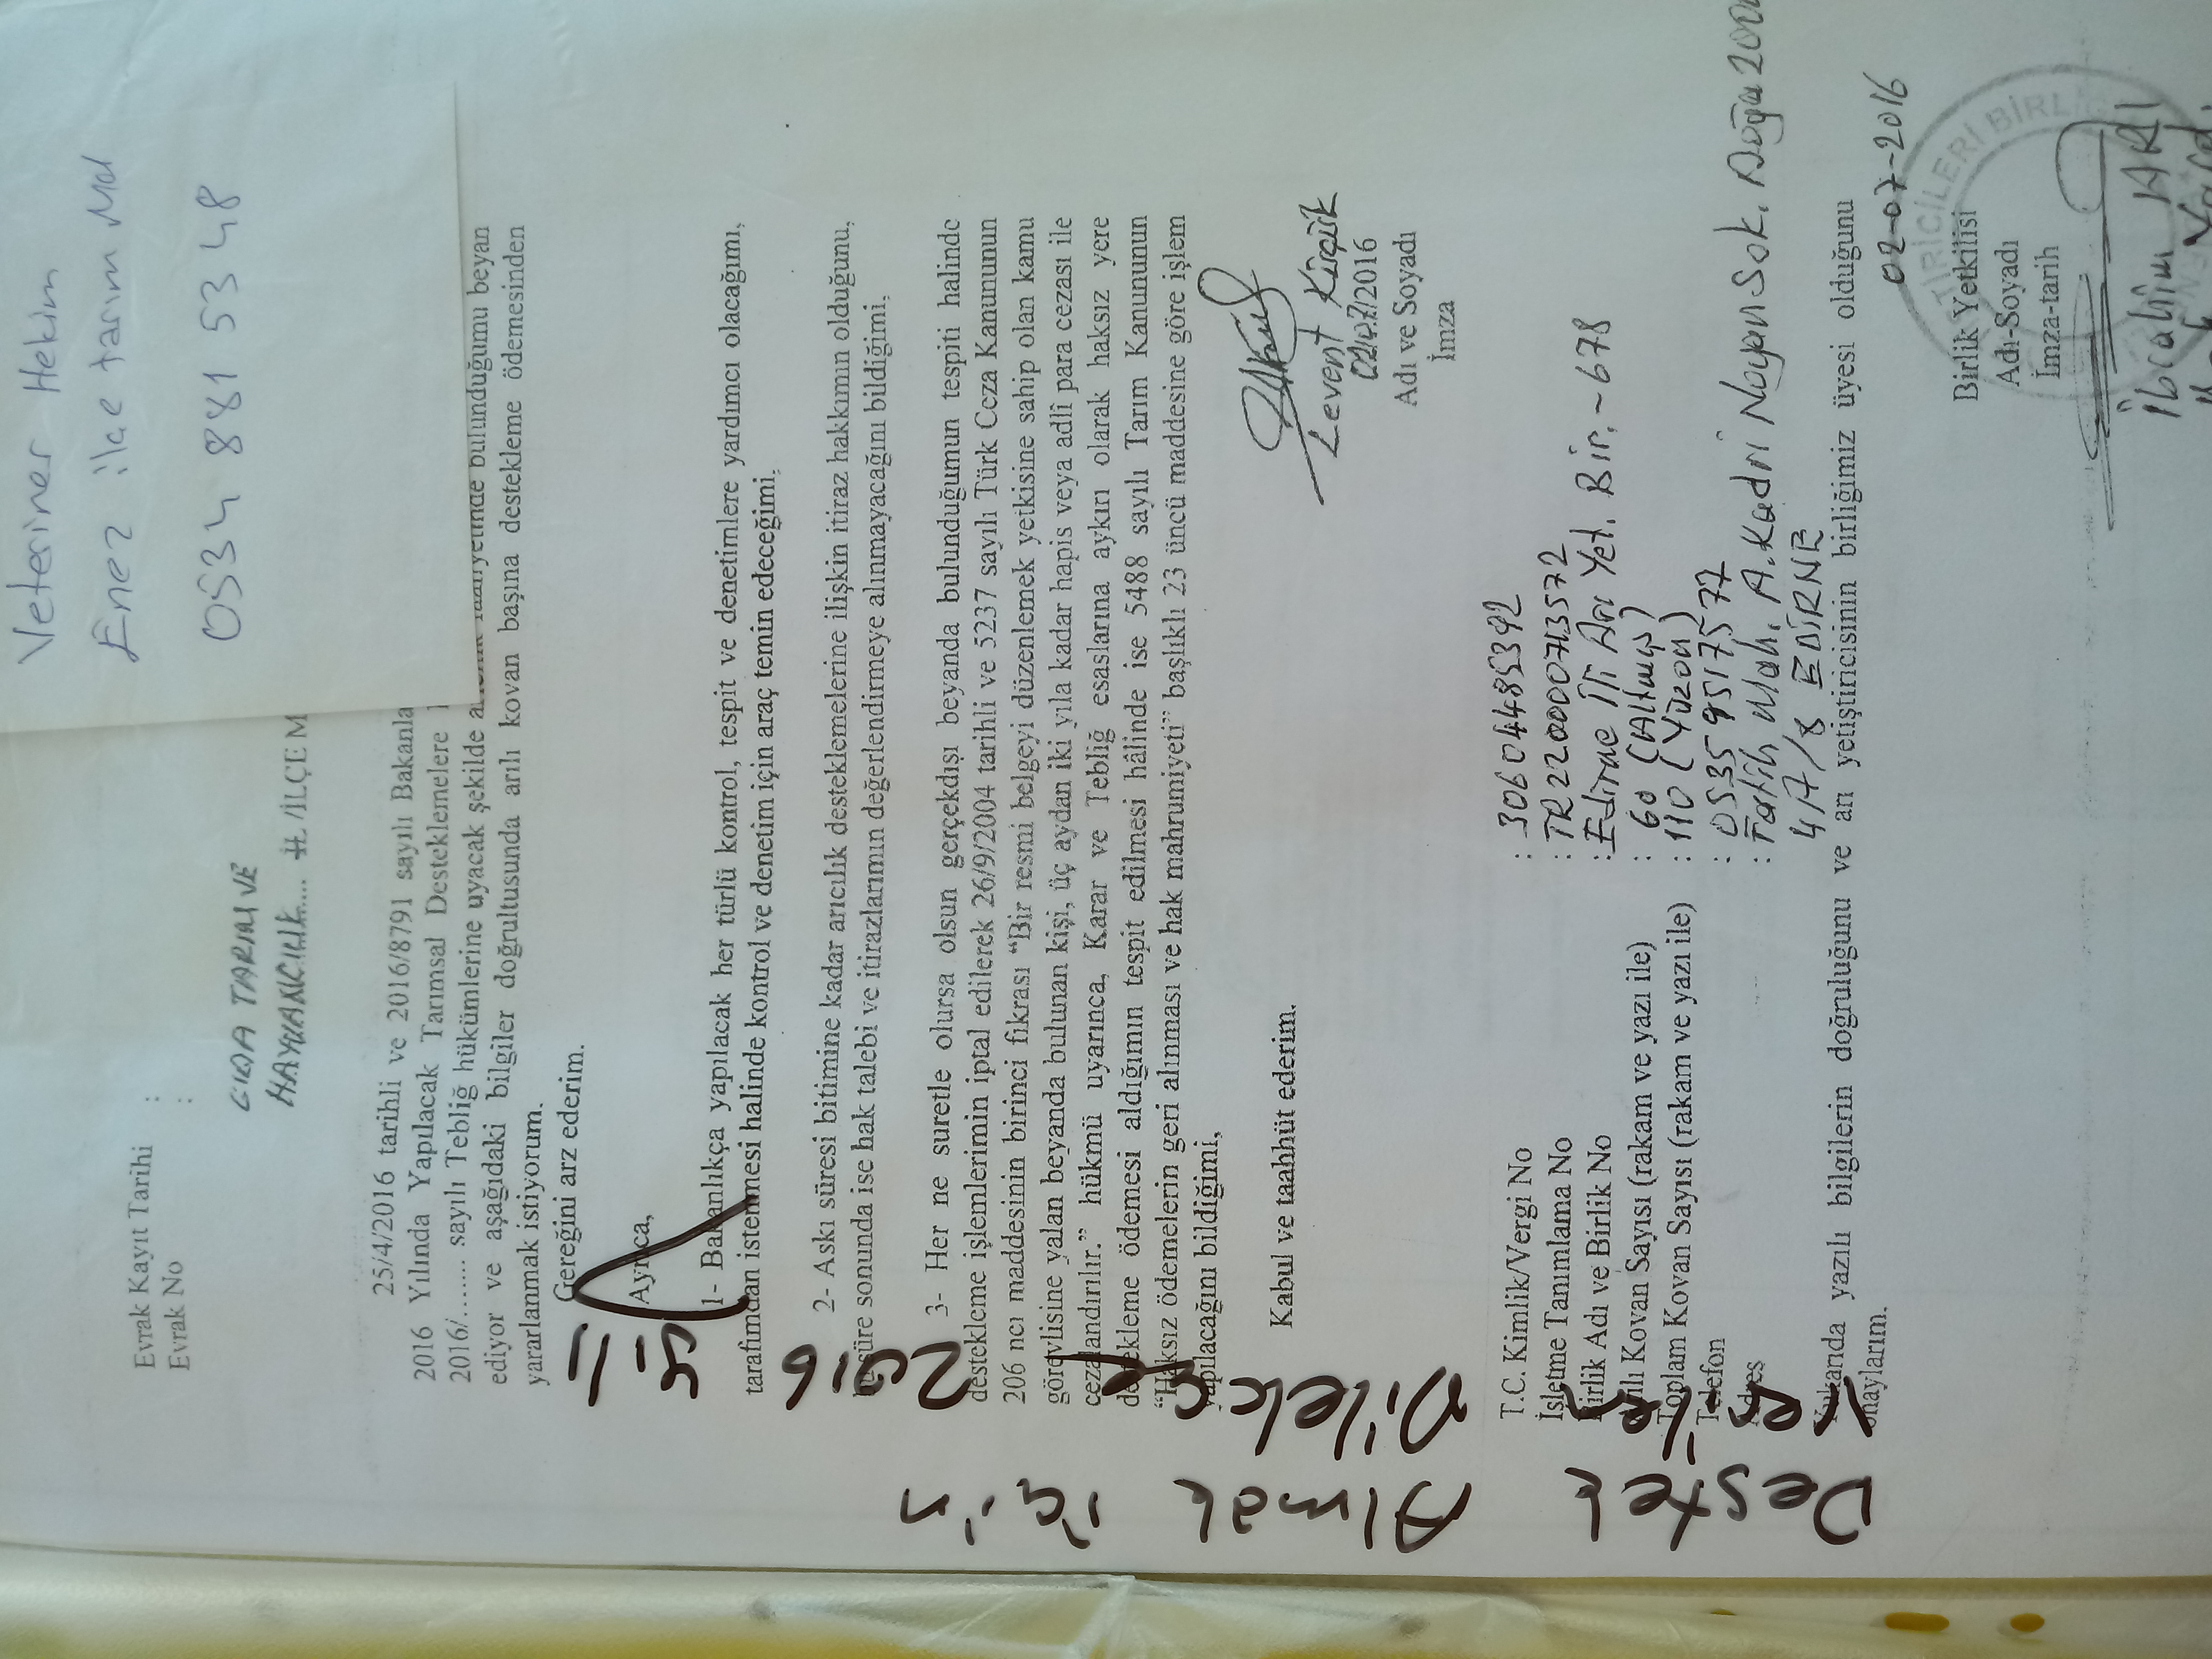 Veteriner Hekim
Enez ilçe tarım Md
0534 881 53 48
Evrak Kayıt Tarihi :
Evrak No :
GIDA TARIM VE
HAYVANCILIK.... İL /İLÇE M
25/4/2016 tarihli ve 2016/8791 sayılı Bakanla
2016 Yılında Yapılacak Tarımsal Desteklemelere
2016/....... sayılı Tebliğ hükümlerine uyacak şekilde bulunduğumu beyan
ediyor ve aşağıdaki bilgiler doğrultusunda arılı kovan başına destekleme ödemesinden
yararlanmak istiyorum.
Gereğini arz ederim.
Ayrıca,
1- Bakanlıkça yapılacak her türlü kontrol, tespit ve denetimlere yardımcı olacağımı,
tarafımdan istenmesi halinde kontrol ve denetim için araç temin edeceğimi,
2- Askı süresi bitimine kadar arıcılık desteklemelerine ilişkin itiraz hakkımın olduğunu,
bu süre sonunda ise hak talebi ve itirazlarımın değerlendirmeye alınmayacağını bildiğimi,
3- Her ne suretle olursa olsun gerçekdışı beyanda bulunduğumun tespiti halinde
destekleme işlemlerimin iptal edilerek 26/9/2004 tarihli ve 5237 sayılı Türk Ceza Kanununun
206 ncı maddesinin birinci fıkrası “Bir resmi belgeyi düzenlemek yetkisine sahip olan kamu
görevlisine yalan beyanda bulunan kişi, üç aydan iki yıla kadar hapis veya adlî para cezası ile
cezalandırılır.” hükmü uyarınca, Karar ve Tebliğ esaslarına aykırı olarak haksız yere
destekleme ödemesi aldığımın tespit edilmesi hâlinde ise 5488 sayılı Tarım Kanununun
“Haksız ödemelerin geri alınması ve hak mahrumiyeti” başlıklı 23 üncü maddesine göre işlem
yapılacağını bildiğimi,
Kabul ve taahhüt ederim.
Levent Kırçık
02/07/2016
Adı ve Soyadı
İmza
T.C. Kimlik/Vergi No : 30604485392
İşletme Tanımlama No : TR220000713572
Birlik Adı ve Birlik No : Edirne İli Arı Yet. Bir. - 678
Arılı Kovan Sayısı (rakam ve yazı ile) : 60 (Altmış)
Toplam Kovan Sayısı (rakam ve yazı ile) : 110 (Yüzon)
Telefon : 0535 9517577
Adres : Fatih Mah. A.Kadri Noyan Sok. Doğa 200
4A/8 EDİRNE
Yukarıda yazılı bilgilerin doğruluğunu ve arı yetiştiricisinin birliğimiz üyesi olduğunu
onaylarım.
02-07-2016
Birlik Yetkilisi
Adı-Soyadı
İmza-tarih
İbrahim ARI
TİRİCİLERİ BİRL
Destek Almak için
Verilen Dilekçe 2016 yılı